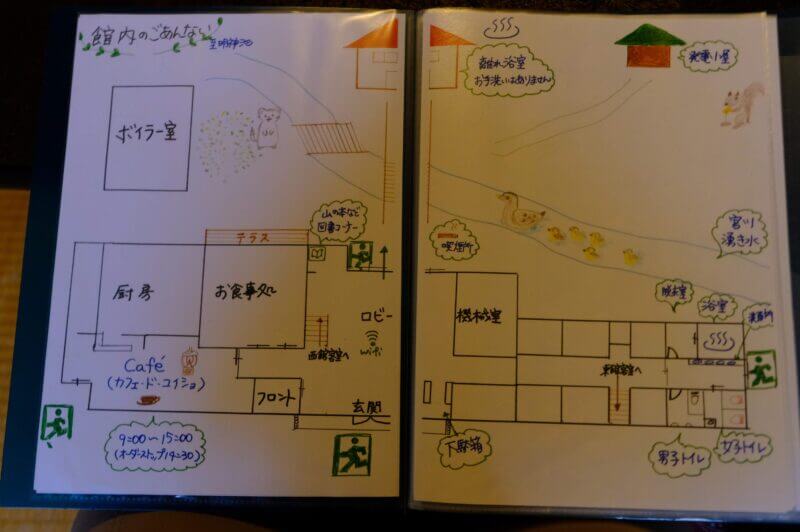 館内のごあんない
至明神池
ボイラー室
山の本など
図書コーナー
テラス
厨房
お食事処
ロビー
wifi
西館客室へ
Café
(カフェ・ド・コイショ)
フロント
玄関
9:00〜15:00
(オーダーストップ14:30)
離れ浴室
お手洗いはありません
発電小屋
喫煙所
宮川
湧き水
機械室
脱衣室
浴室
洗面所
東館客室へ
下駄箱
男子トイレ
女子トイレ